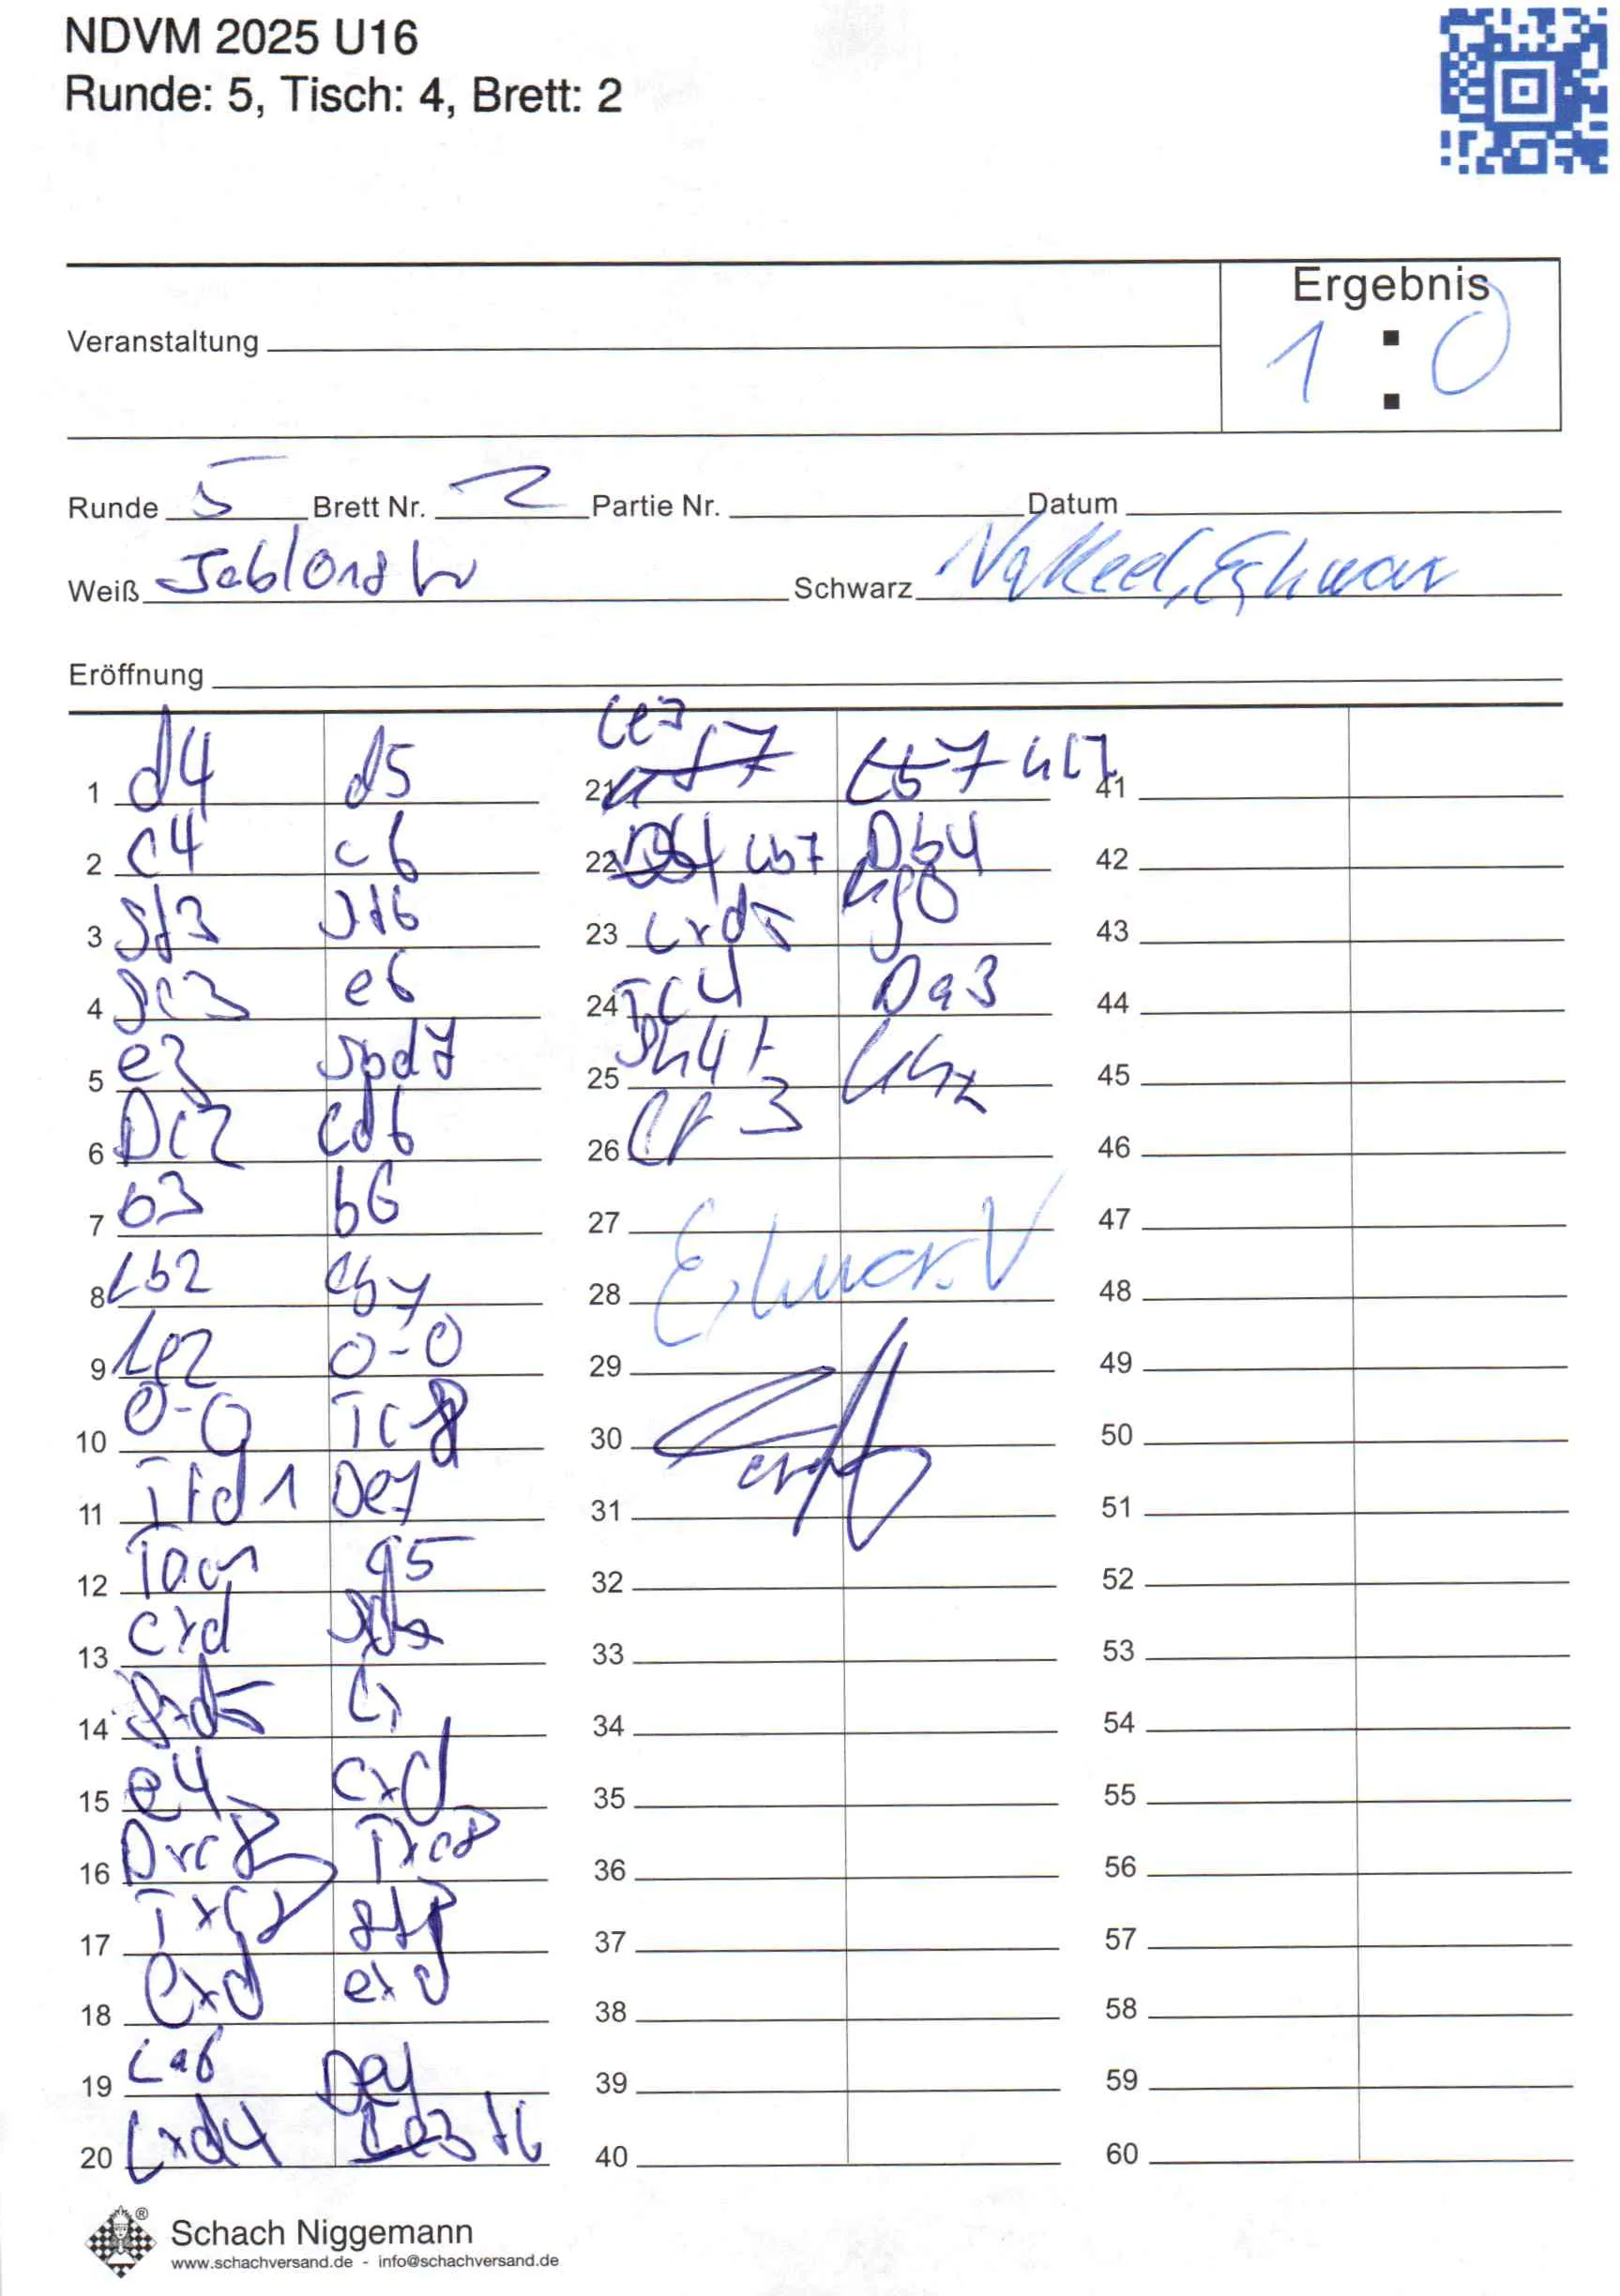 NDVM 2025 U16
Runde: 5, Tisch: 4, Brett: 2
Ergebnis
1 : 0
Veranstaltung
Runde 5 Brett Nr. 2 Partie Nr. Datum
Weiß Schwarz
Eröffnung
1 d4 d5
2 c4 c6
3 Sf3 Sf6
4 Sc3 e6
5 e3 Sbd7
6 Dc2 Ld6
7 b3 b6
8 Lb2 Lb7
9 Le2 0-0
10 0-0 Tc8
11 Tfd1 De7
12 Tac1 g5
13 cxd
14 Sxd5 Lx
15 e4 cxd
16 Dxc8 Txc8
17 Txc8 Sf8
18 exd exd
19 La6
20 Lxd4 f6
21 Le3
22 Lb7 Db4
23 Lxd5 Kg8
24 Tc4 Da3
25 Sh4+
26 Lf3
27
28
29
30
31
32
33
34
35
36
37
38
39
40
41
42
43
44
45
46
47
48
49
50
51
52
53
54
55
56
57
58
59
60
Schach Niggemann
www.schachversand.de - info@schachversand.de